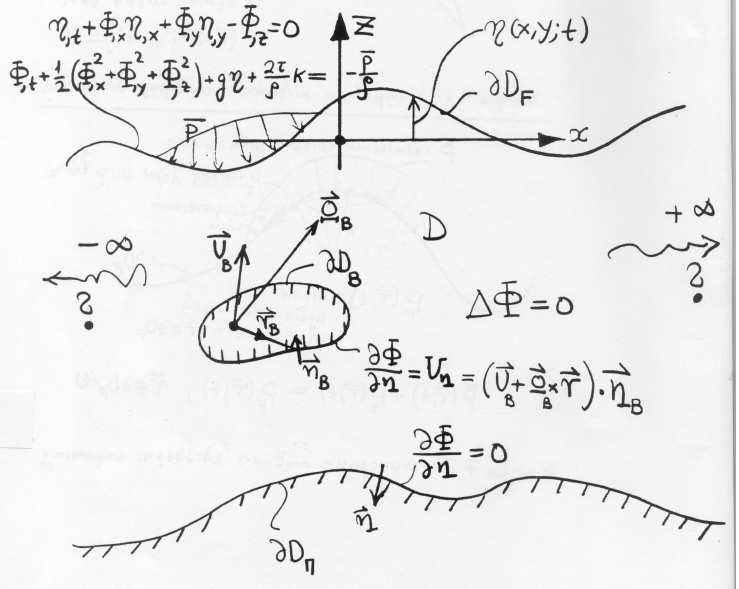 η,t + Φ,x η,x + Φ,y η,y - Φ,z = 0
Φ,t + 1/2 (Φ,x² + Φ,y² + Φ,z²) + gη + 2τ/ρ K = - P̄/ρ
Z
η(x,y;t)
∂D_F
P̄
x
Ω⃗_B
D
+∞
-∞
U⃗_B
∂D_B
?
?
ΔΦ = 0
r⃗_B
n⃗_B
∂Φ/∂n = U_n = (U⃗_B + Ω⃗_B × r⃗) · n⃗_B
∂Φ/∂n = 0
n⃗
∂D_Π